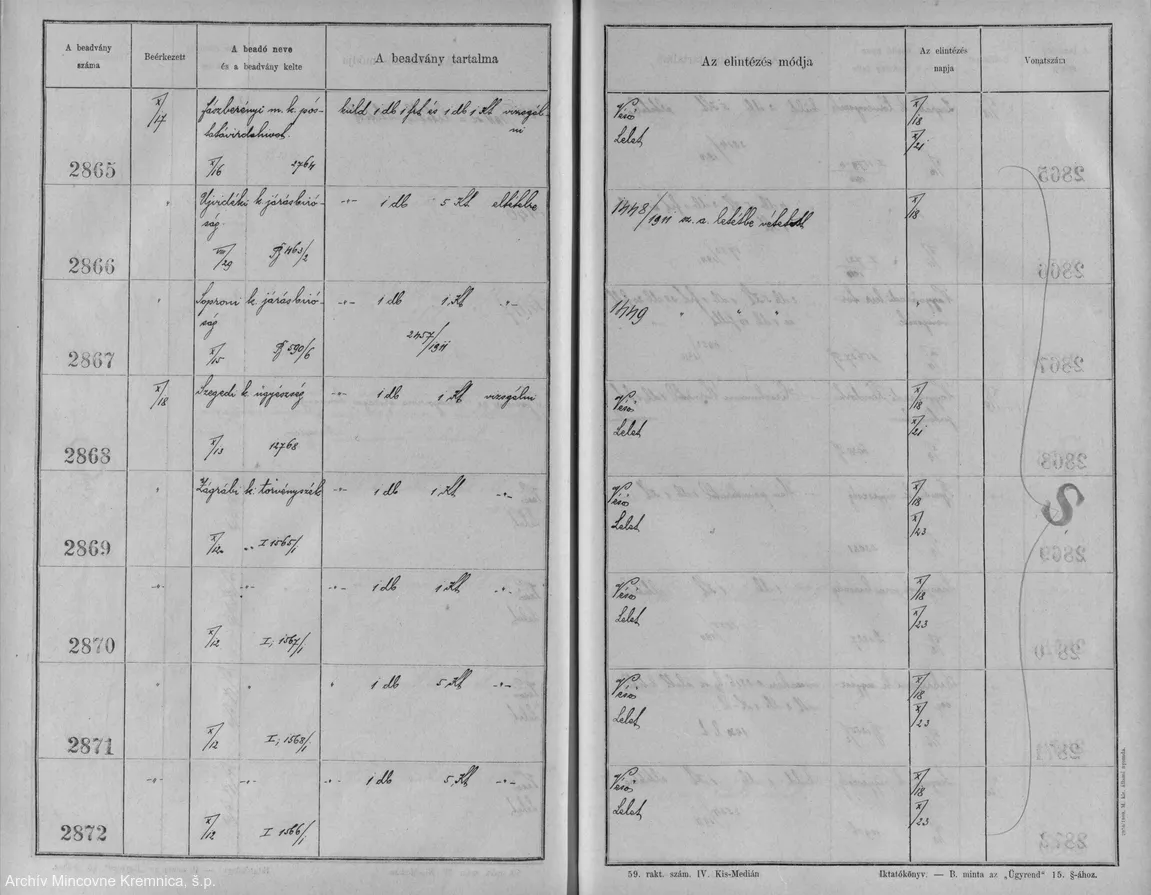 A beadvány
száma
Beérkezett
A beadó neve
és a beadvány kelte
A beadvány tartalma
Az elintézés módja
Az elintézés
napja
Vonatszám
2865
X/17
Jászberényi m. k. pós-
X/16 2764
küld 1 db 1 frt és 1 db 1 Kt vizsgál-
ni
Véső
Lelet
X/18
X/21
2866
Ujvidéki k. járásbiró-
ság
VIII/29 463/2
1 db 5 Kt
1448/1911 sz. a. letétbe vétetett
X/18
2867
Soproni k. járásbiró-
ság
X/15 590/6
1 db 1 Kt
2457/1911
1449
2868
X/18
Szegedi k. ügyészség
X/13 12768
1 db 1 Kt vizsgálni
Véső
Lelet
X/18
X/21
2869
Zágrábi k. törvényszék
X/12 I 1565/1
1 db 1 Kt
Véső
Lelet
X/18
X/23
2870
X/12 I, 1567/1
1 db 1 Kt
Véső
Lelet
X/18
X/23
2871
X/12 I, 1568/1
1 db 5 Kt
Véső
Lelet
X/18
X/23
2872
X/12 I 1566/1
1 db 5 Kt
Véső
Lelet
X/18
X/23
8
59. rakt. szám. IV. Kis-Medián
Iktatókönyv. — B. minta az „Ügyrend" 15. §-ához.
Archív Mincovne Kremnica, š.p.